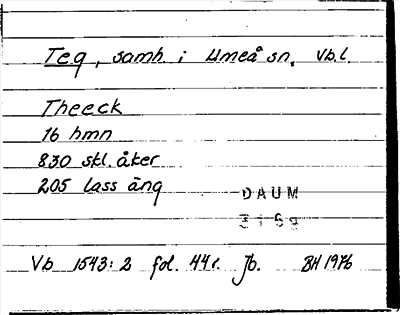 Teg, samh. i Umeå sn. Vb.l.
Theeck
16 hmn
830 skl. åker
205 lass äng
DAUM
Vb 1543:2 fol. 44r. Jb. BH 1976